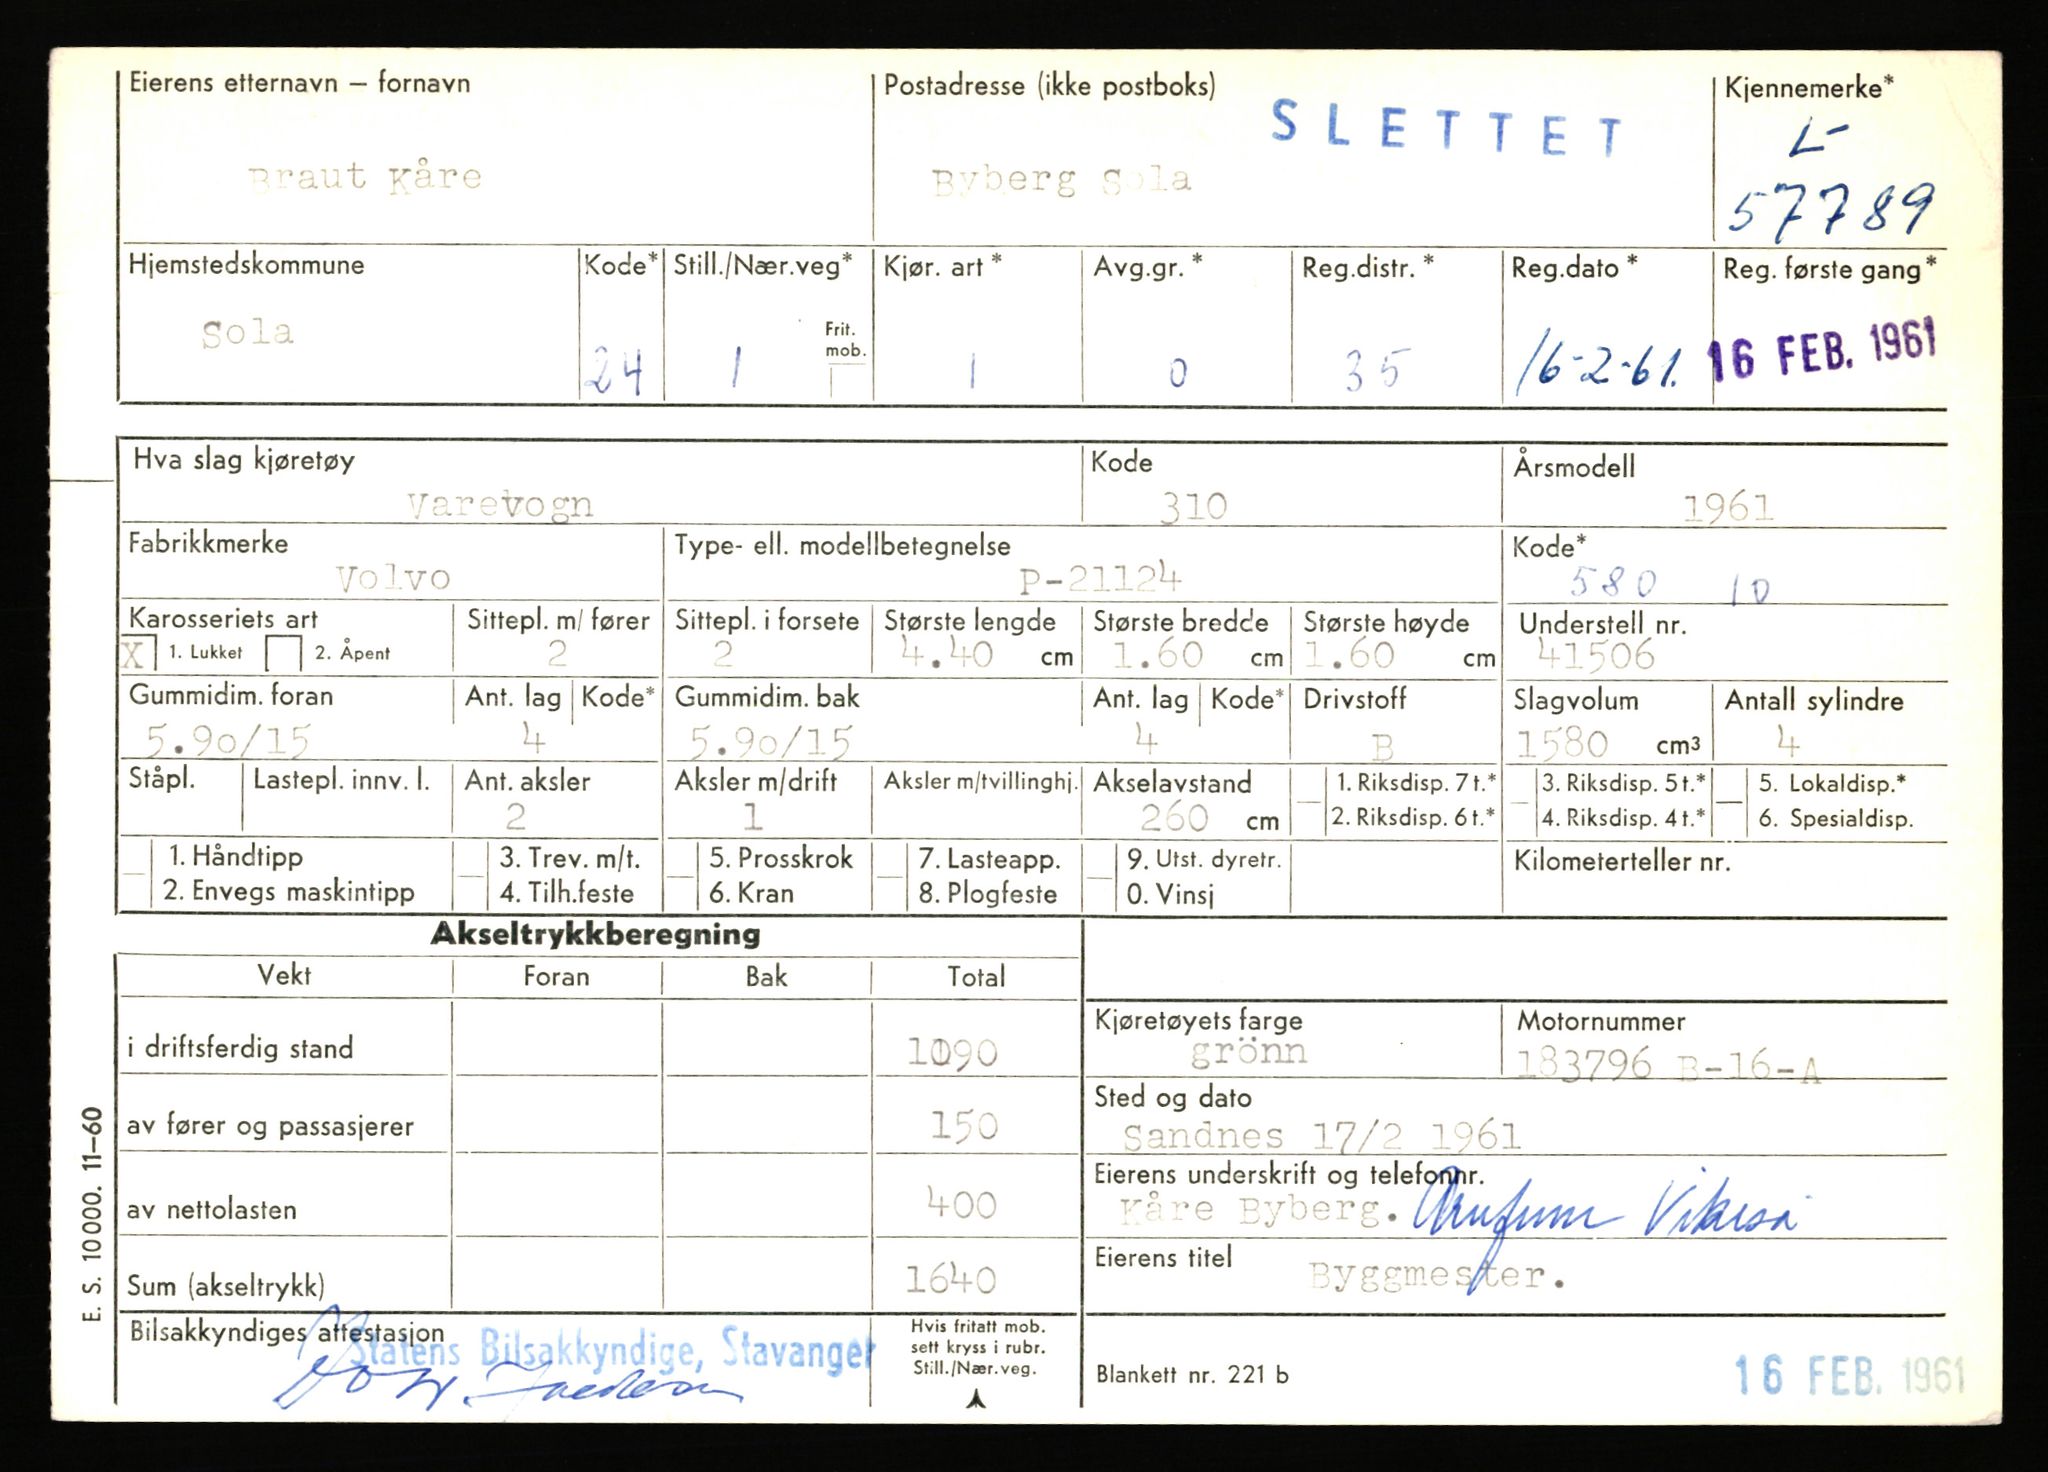 Eierens etternavn – fornavn
Postadresse (ikke postboks)
Kjennemerke*
SLETTET
L-
Braut Kåre
Byberg Sola
57789
Hjemstedskommune
Kode*
Still./Nær.veg*
Kjør. art *
Avg.gr. *
Reg.distr. *
Reg.dato *
Reg. første gang*
Sola
Frit. mob.
24
1
1
0
35
16-2-61.
16 FEB. 1961
Hva slag kjøretøy
Kode
Årsmodell
Varevogn
310
1961
Fabrikkmerke
Type- ell. modellbetegnelse
Kode*
Volvo
P-21124
580 10
Karosseriets art
Sittepl. m/ fører
Sittepl. i forsete
Største lengde
Største bredde
Største høyde
Understell nr.
X 1. Lukket 2. Åpent
2
2
4.40 cm
1.60 cm
1.60 cm
41506
Gummidim. foran
Ant. lag
Kode*
Gummidim. bak
Ant. lag
Kode*
Drivstoff
Slagvolum
Antall sylindre
5.90/15
4
5.90/15
4
B
1580 cm3
4
Ståpl.
Lastepl. innv. l.
Ant. aksler
Aksler m/drift
Aksler m/tvillinghj.
Akselavstand
1. Riksdisp. 7 t.*
3. Riksdisp. 5 t.*
5. Lokaldisp.*
2
1
260 cm
2. Riksdisp. 6 t.*
4. Riksdisp. 4 t.*
6. Spesialdisp.
1. Håndtipp
3. Trev. m/t.
5. Prosskrok
7. Lasteapp.
9. Utst. dyretr.
Kilometerteller nr.
2. Envegs maskintipp
4. Tilh.feste
6. Kran
8. Plogfeste
0. Vinsj
Akseltrykkberegning
Vekt
Foran
Bak
Total
i driftsferdig stand
1090
av fører og passasjerer
150
av nettolasten
400
Sum (akseltrykk)
1640
Kjøretøyets farge
Motornummer
grönn
183796 B-16-A
Sted og dato
Sandnes 17/2 1961
Eierens underskrift og telefonnr.
Kåre Byberg.
Eierens titel
Byggmester.
Bilsakkyndiges attestasjon
Statens Bilsakkyndige, Stavanger
Hvis fritatt mob.
sett kryss i rubr.
Still./Nær.veg.
Blankett nr. 221 b
16 FEB. 1961
E. S. 10000. 11-60